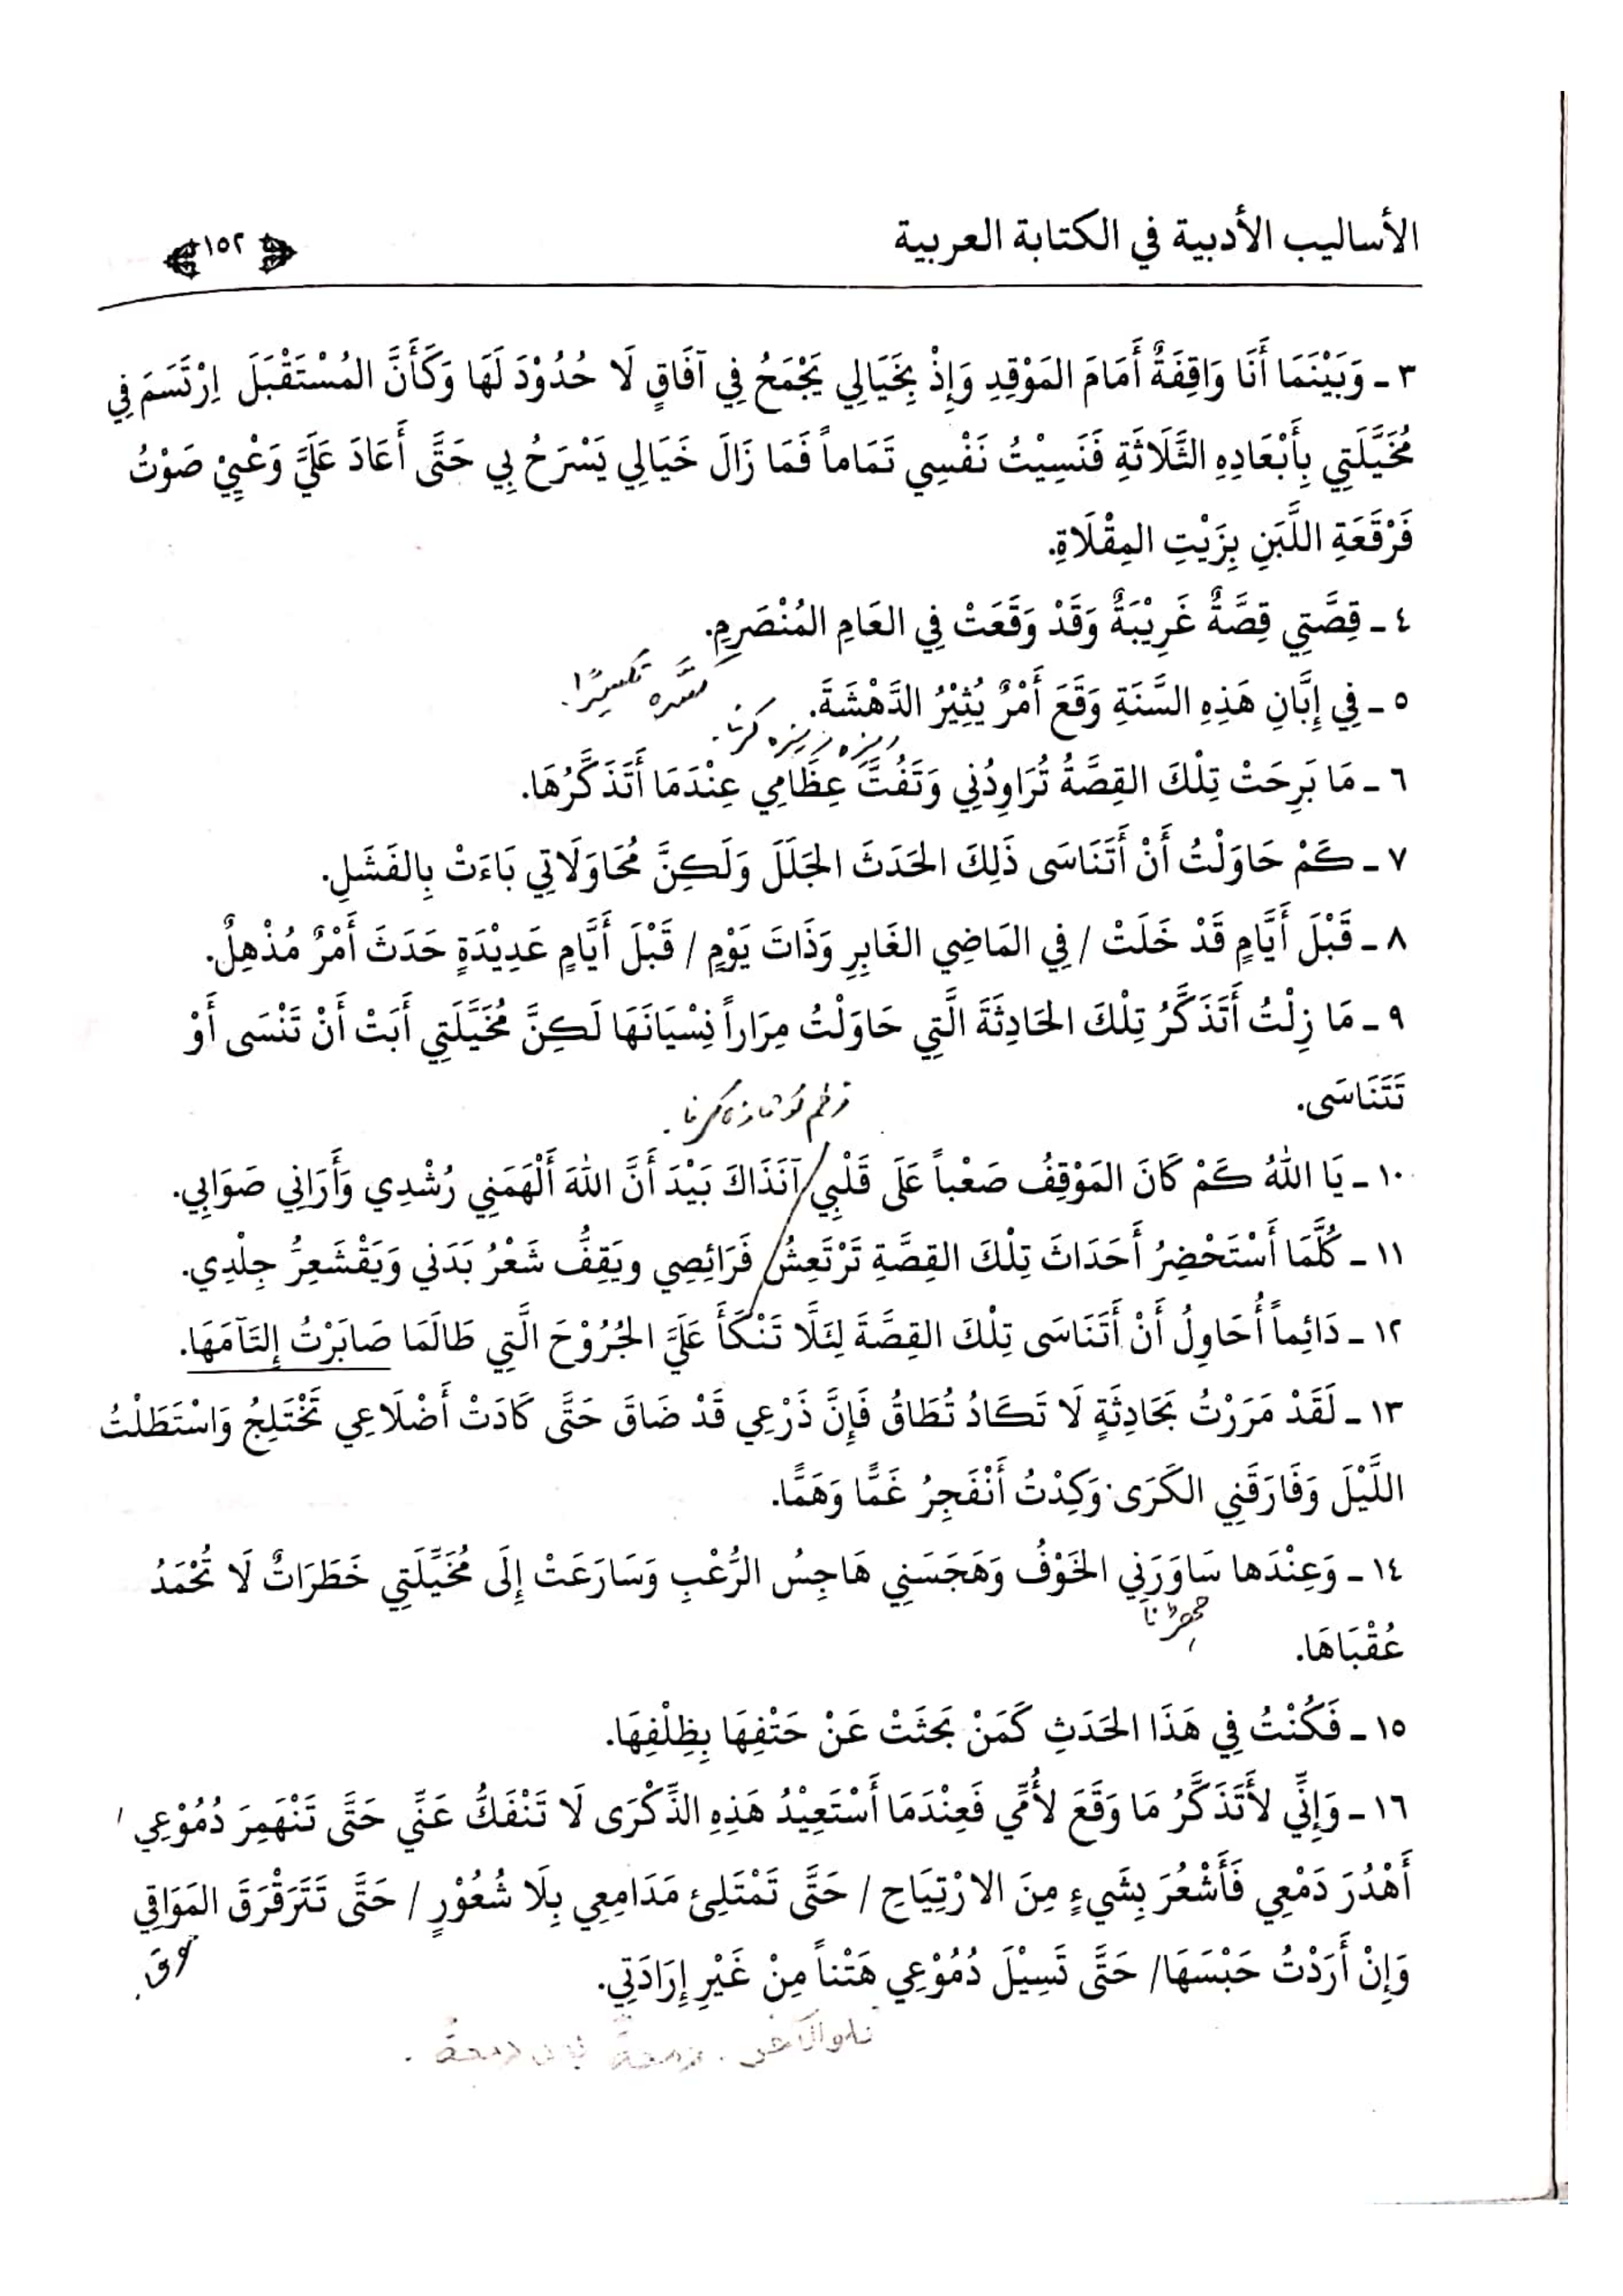 الأساليب الأدبية في الكتابة العربية
١٥٢
٣ ـ وَبَيْنَمَا أَنَا وَاقِفَةٌ أَمَامَ المَوْقِدِ وَإِذْ بِخَيَالِي يَجْمَحُ فِي آفَاقٍ لَا حُدُوْدَ لَهَا وَكَأَنَّ المُسْتَقْبَلَ اِرْتَسَمَ فِي
مُخَيَّلَتِي بِأَبْعَادِهِ الثَّلَاثَةِ فَنَسِيْتُ نَفْسِي تَمَاماً فَمَا زَالَ خَيَالِي يَسْرَحُ بِي حَتَّى أَعَادَ عَلَيَّ وَعْيِيْ صَوْتُ
فَرْقَعَةِ اللَّبَنِ بِزَيْتِ المِقْلَاةِ.
٤ ـ قِصَّتِي قِصَّةٌ غَرِيْبَةٌ وَقَدْ وَقَعَتْ فِي العَامِ المُنْصَرِمِ.
كسَّره تكسيرًا.
٥ ـ فِي إِبَّانِ هَذِهِ السَّنَةِ وَقَعَ أَمْرٌ يُثِيْرُ الدَّهْشَةَ.
ریزہ ریزہ کرنا.
٦ ـ مَا بَرِحَتْ تِلْكَ القِصَّةُ تُرَاوِدُنِي وَتَفُتَّ عِظَامِي عِنْدَمَا أَتَذَكَّرُهَا.
٧ ـ كَمْ حَاوَلْتُ أَنْ أَتَنَاسَى ذَلِكَ الحَدَثَ الجَلَلَ وَلَكِنَّ مُحَاوَلَاتِي بَاءَتْ بِالفَشَلِ.
٨ ـ قَبْلَ أَيَّامٍ قَدْ خَلَتْ / فِي المَاضِي الغَابِرِ وَذَاتَ يَوْمٍ / قَبْلَ أَيَّامٍ عَدِيْدَةٍ حَدَثَ أَمْرٌ مُذْهِلٌ.
٩ ـ مَا زِلْتُ أَتَذَكَّرُ تِلْكَ الحَادِثَةَ الَّتِي حَاوَلْتُ مِرَاراً نِسْيَانَهَا لَكِنَّ مُخَيَّلَتِي أَبَتْ أَنْ تَنْسَى أَوْ
تَتَنَاسَى.
زخم کو تازہ کرنا.
١٠ ـ يَا اللهُ كَمْ كَانَ المَوْقِفُ صَعْباً عَلَى قَلْبِي آنَذَاكَ بَيْدَ أَنَّ اللهَ أَلْهَمَنِي رُشْدِي وَأَرَانِي صَوَابِي.
١١ ـ كُلَّمَا أَسْتَحْضِرُ أَحَدَاثَ تِلْكَ القِصَّةِ تَرْتَعِشُ فَرَائِصِي ويَقِفُّ شَعْرُ بَدَنِي وَيَقْشَعِرُّ جِلْدِي.
١٢ ـ دَائِماً أُحَاوِلُ أَنْ أَتَنَاسَى تِلْكَ القِصَّةَ لِئَلَّا تَنْكَأَ عَلَيَّ الجُرُوْحَ الَّتِي طَالَمَا صَابَرْتُ إِلتَآمَهَا.
١٣ ـ لَقَدْ مَرَرْتُ بَحَادِثَةٍ لَا تَكَادُ تُطَاقُ فَإِنَّ ذَرْعِي قَدْ ضَاقَ حَتَّى كَادَتْ أَضْلَاعِي تَخْتَلِجُ وَاسْتَطَلْتُ
اللَّيْلَ وَفَارَقَنِي الكَرَى وَكِدْتُ أَنْفَجِرُ غَمًّا وَهَمًّا.
١٤ ـ وَعِنْدَها سَاوَرَنِي الخَوْفُ وَهَجَسَنِي هَاجِسُ الرُّعْبِ وَسَارَعَتْ إِلَى مُخَيِّلَتِي خَطَرَاتٌ لَا تُحْمَدُ
عُقْبَاهَا.
١٥ ـ فَكُنْتُ فِي هَذَا الحَدَثِ كَمَنْ بَحَثَتْ عَنْ حَتْفِهَا بِظِلْفِهَا.
١٦ ـ وَإِنِّي لأَتَذَكَّرُ مَا وَقَعَ لأُمِّي فَعِنْدَمَا أَسْتَعِيْدُ هَذِهِ الذِّكْرَى لَا تَنْفَكُّ عَنِّي حَتَّى تَنْهَمِرَ دُمُوْعِي /
أَهْدُرَ دَمْعِي فَأَشْعُرَ بِشَيءٍ مِنَ الارْتِيَاحِ / حَتَّى تَمْتَلِئ مَدَامِعِي بِلَا شُعُوْرٍ / حَتَّى تَتَرَقْرَقَ المَوَاقِي
وَإِنْ أَرَدْتُ حَبْسَهَا/ حَتَّى تَسِيْلَ دُمُوْعِي هَتْناً مِنْ غَيْرِ إِرَادَتِي.